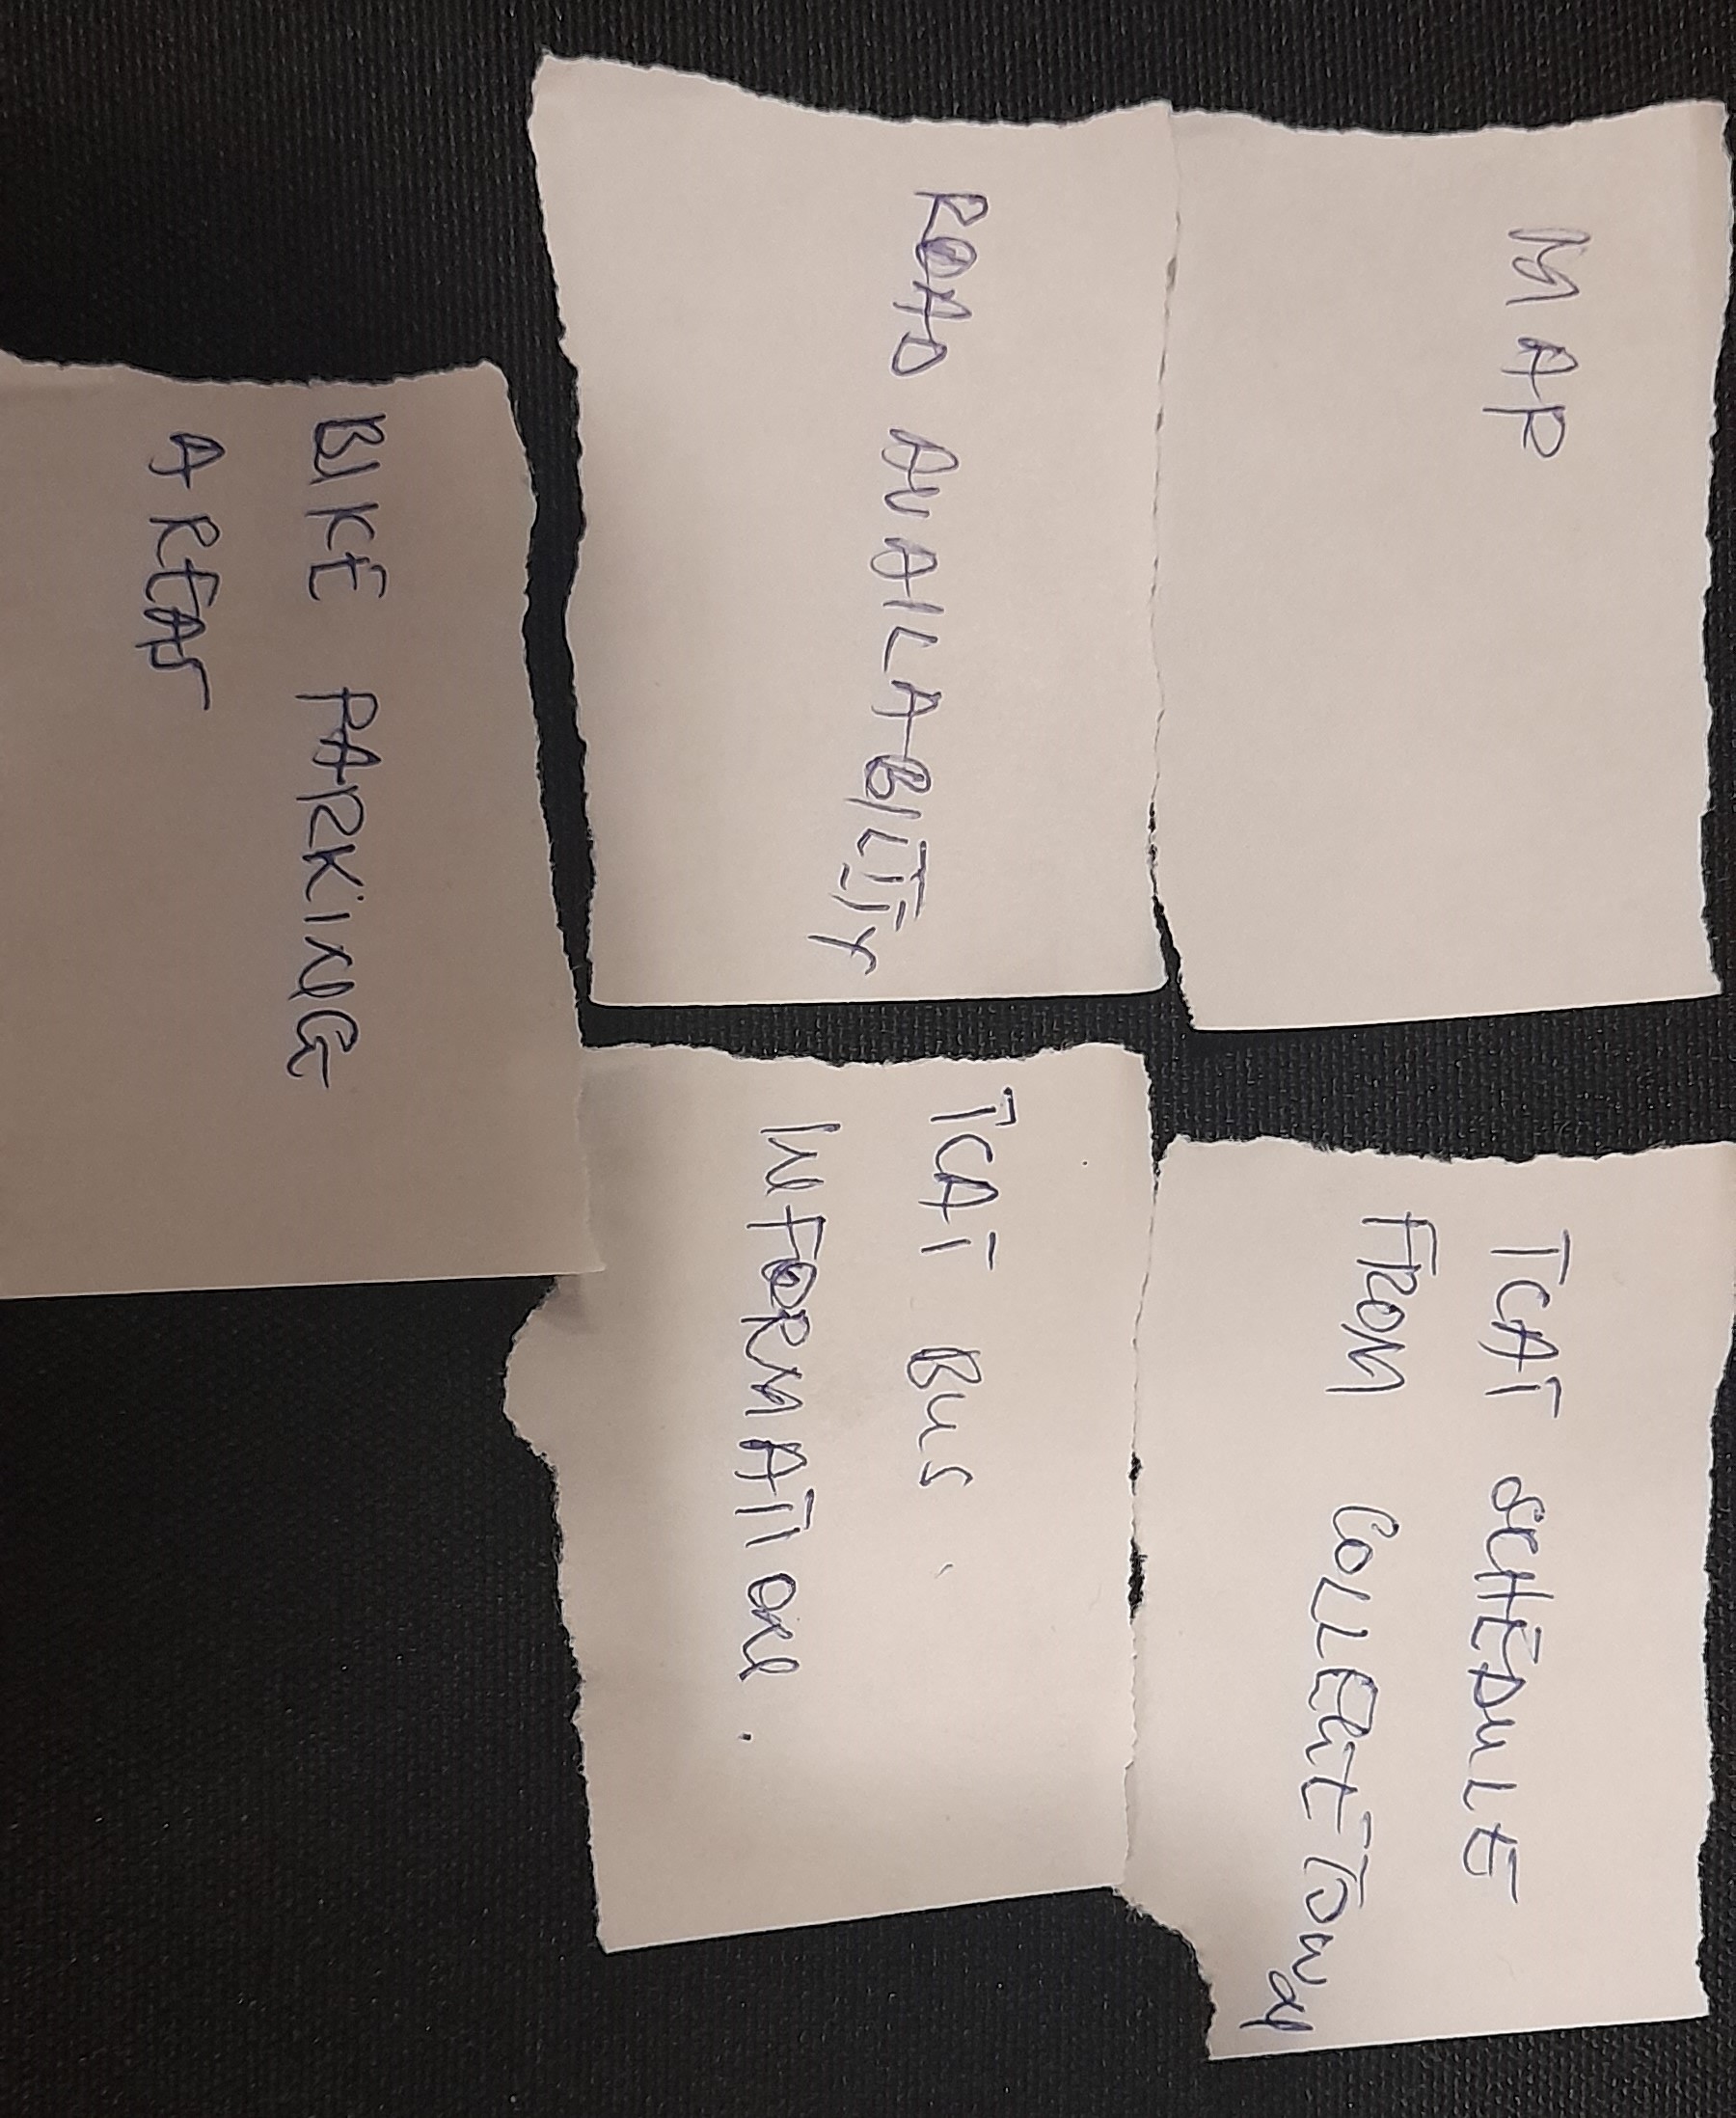 MAP
TCAT SCHEDULE
FROM COLLEGETOWN
ROAD AVAILABILITY
TCAT BUS
INFORMATION.
BIKE PARKING
AREAS